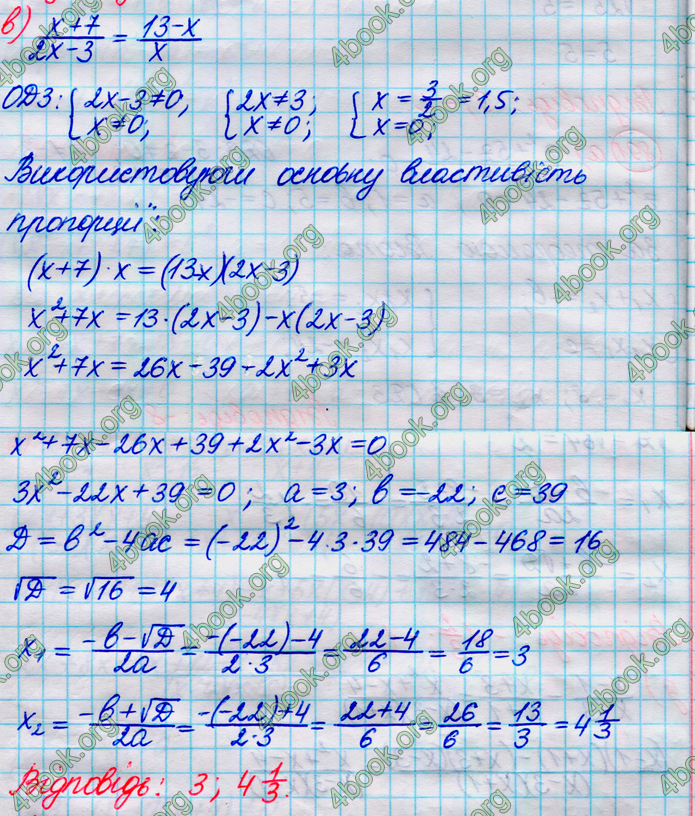 в) (x+7)/(2x-3) = (13-x)/x
ОДЗ: { 2x-3≠0, { 2x≠3; { x = 3/2 = 1,5;
x≠0; x≠0; x=0;
Використовуючи основну властивість
пропорції:
(x+7)·x = (13x)(2x-3)
x²+7x = 13·(2x-3)-x(2x-3)
x²+7x = 26x-39-2x²+3x
x²+7x-26x+39+2x²-3x=0
3x²-22x+39=0; a=3; b=-22; c=39
Д = b²-4ac = (-22)²-4·3·39 = 484-468 = 16
√Д = √16 = 4
x₁ = (-b-√Д)/2a = (-(-22)-4)/(2·3) = (22-4)/6 = 18/6 = 3
x₂ = (-b+√Д)/2a = (-(-22)+4)/(2·3) = (22+4)/6 = 26/6 = 13/3 = 4 1/3
Відповідь: 3; 4 1/3.
4book.org